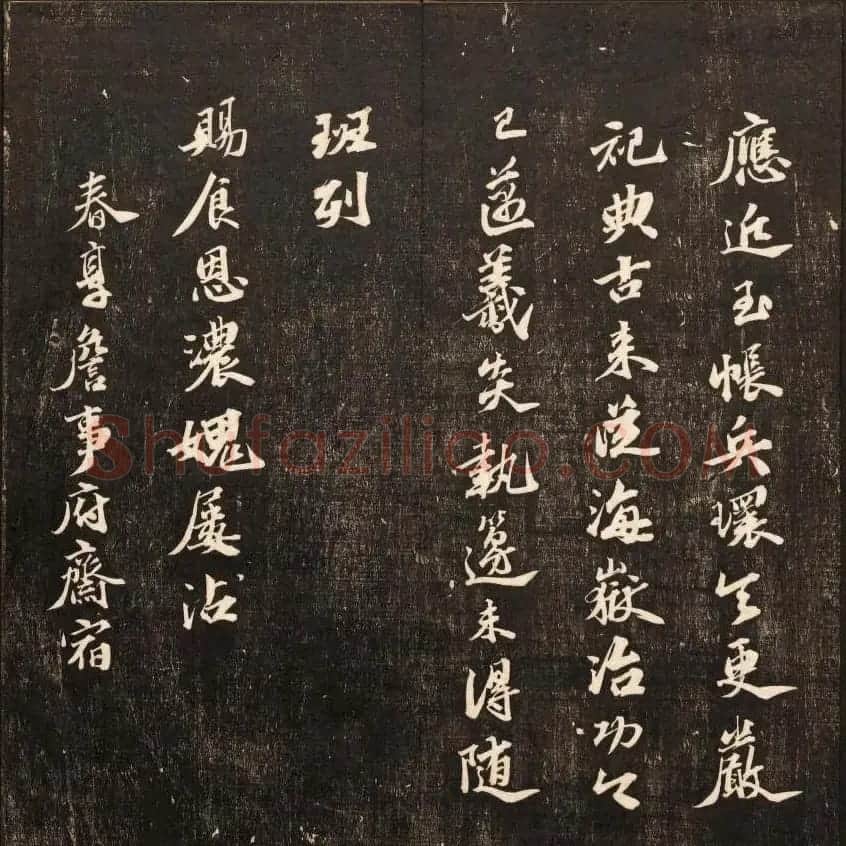 應近玉帳兵環令更嚴
祀典古来從海嶽治功今
已邁羲炎執籩未得随
班列
賜食恩濃媿屢沾
春享詹事府齋宿
Shufaziliao.COM